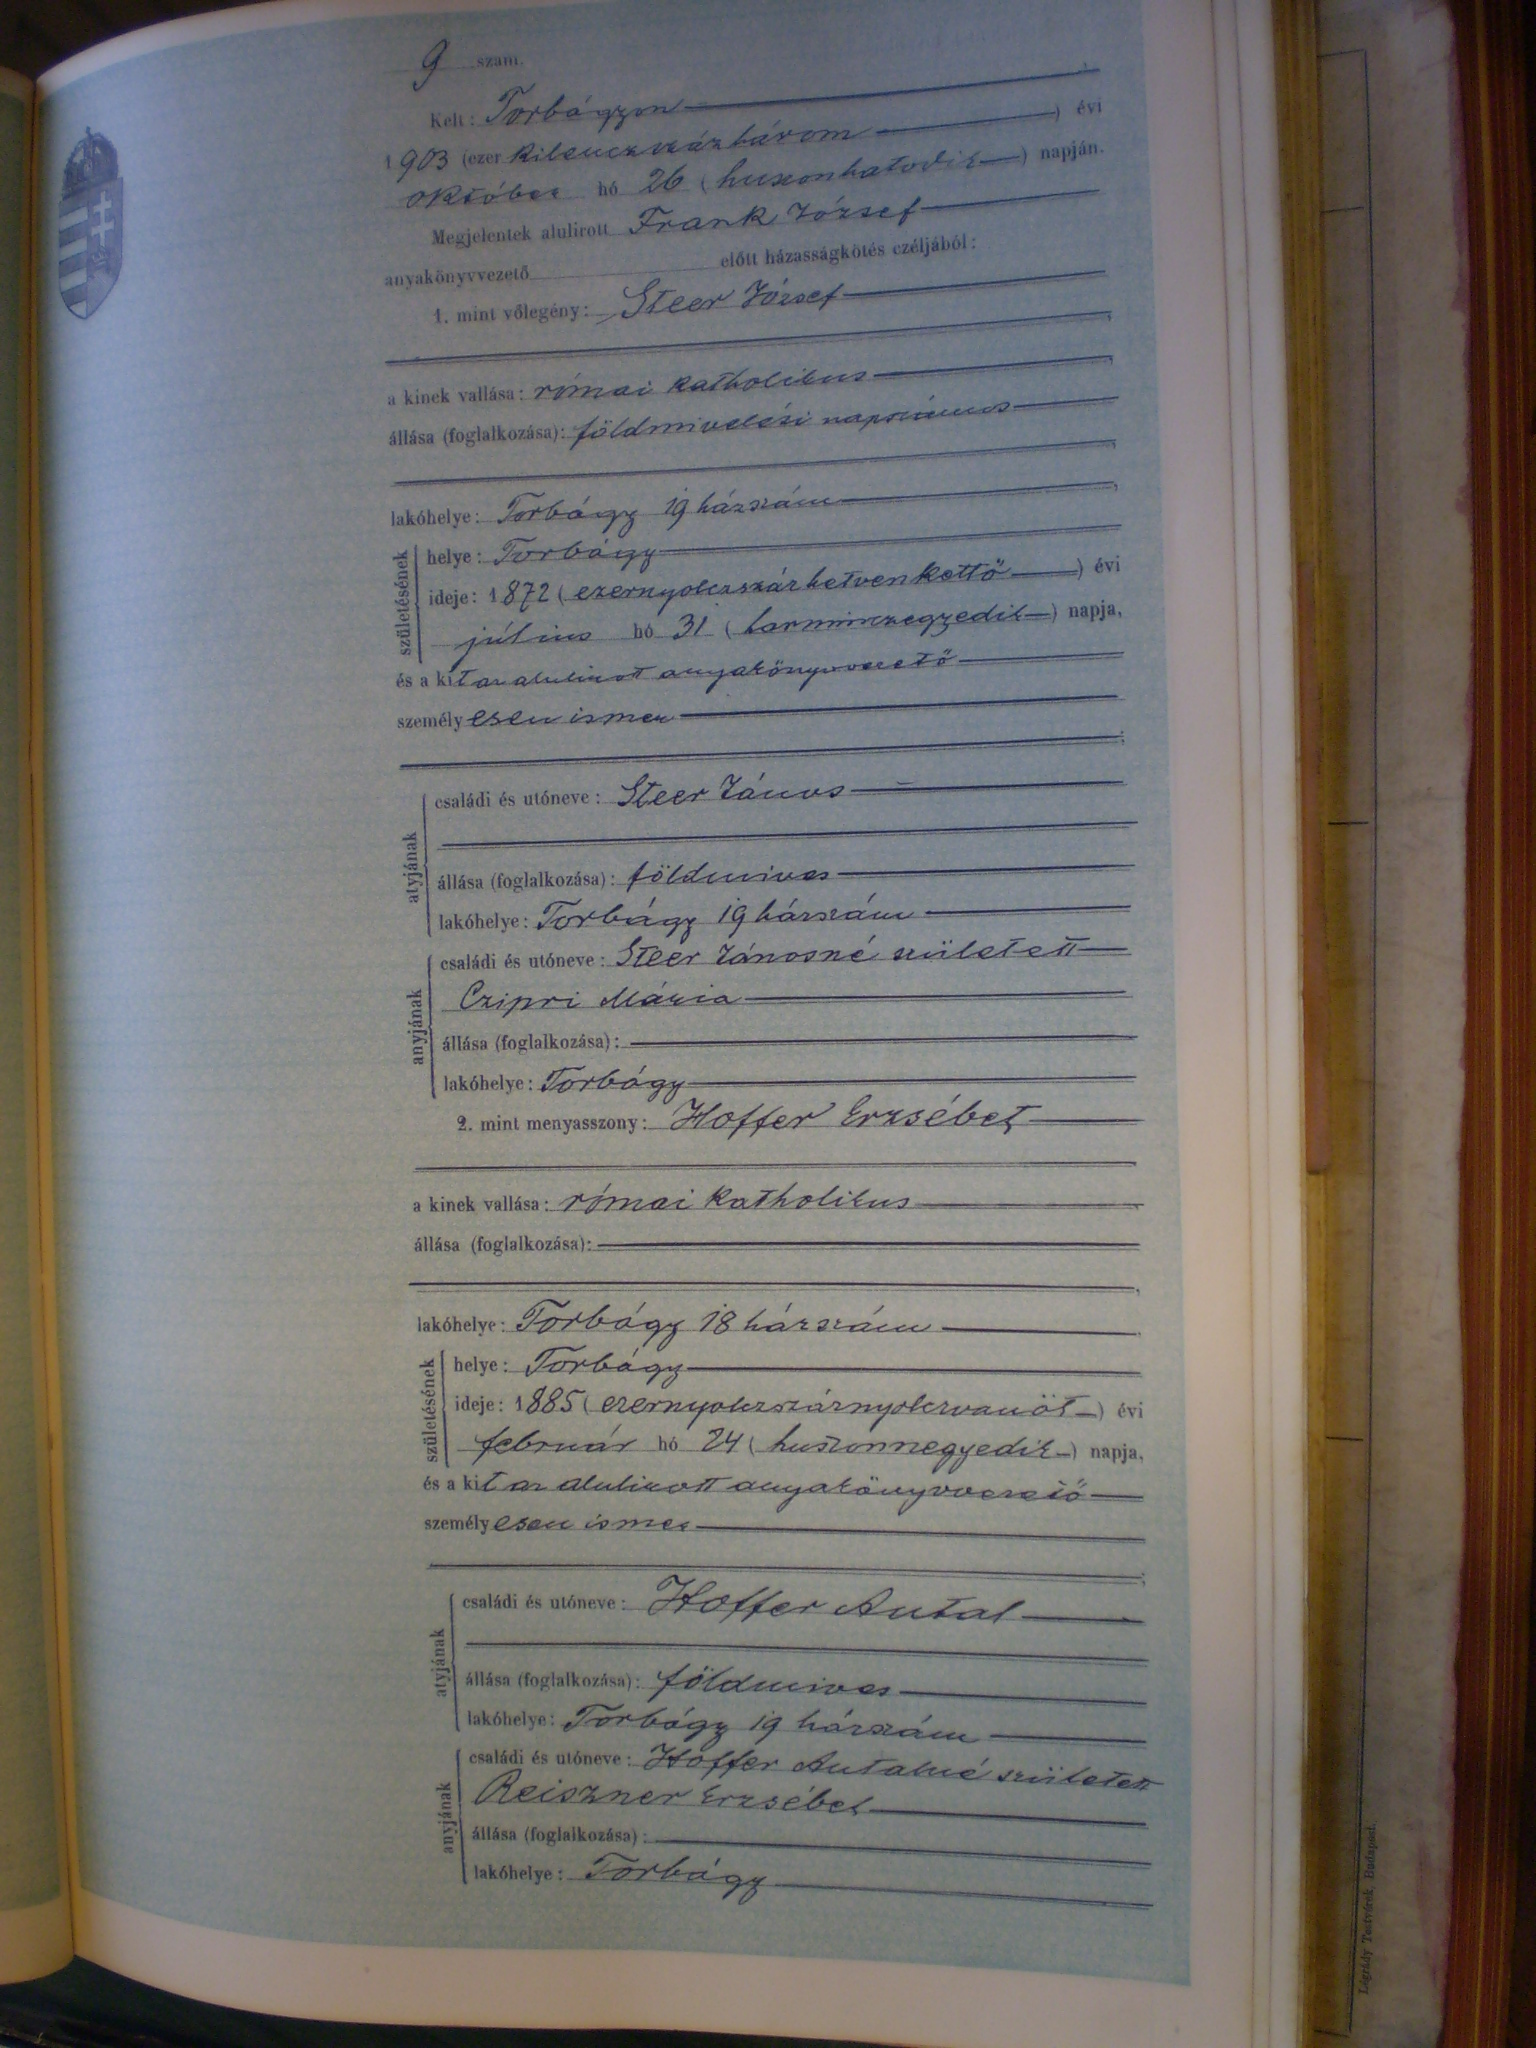 9 szám.
Kelt: Torbágyon
1903 (ezer kilenczszázhárom) évi
október hó 26 (huszonhatodik) napján.
Megjelentek alulirott Frank József
anyakönyvvezető előtt házasságkötés czéljából:
1. mint vőlegény: Steer József
a kinek vallása: római katholikus
állása (foglalkozása): földmivelési napszámos
lakóhelye: Torbágy 19 házszám
születésének
helye: Torbágy
ideje: 1872 (ezernyolczszázhetvenkettő) évi
július hó 31 (harminczegyedik) napja,
és a kit az alulirott anyakönyvvezető
személyesen ismer
atyjának
családi és utóneve: Steer János
állása (foglalkozása): földmives
lakóhelye: Torbágy 19 házszám
anyjának
családi és utóneve: Steer Jánosné született
Czipri Mária
állása (foglalkozása):
lakóhelye: Torbágy
2. mint menyasszony: Hoffer Erzsébet
a kinek vallása: római katholikus
állása (foglalkozása):
lakóhelye: Torbágy 18 házszám
születésének
helye: Torbágy
ideje: 1885 (ezernyolczszáznyolczvanöt) évi
február hó 24 (huszonnegyedik) napja,
és a kit az alulirott anyakönyvvezető
személyesen ismer
atyjának
családi és utóneve: Hoffer Antal
állása (foglalkozása): földmives
lakóhelye: Torbágy 19 házszám
anyjának
családi és utóneve: Hoffer Antalné született
Reiszner Erzsébet
állása (foglalkozása):
lakóhelye: Torbágy
Légrády Testvérek, Budapest.